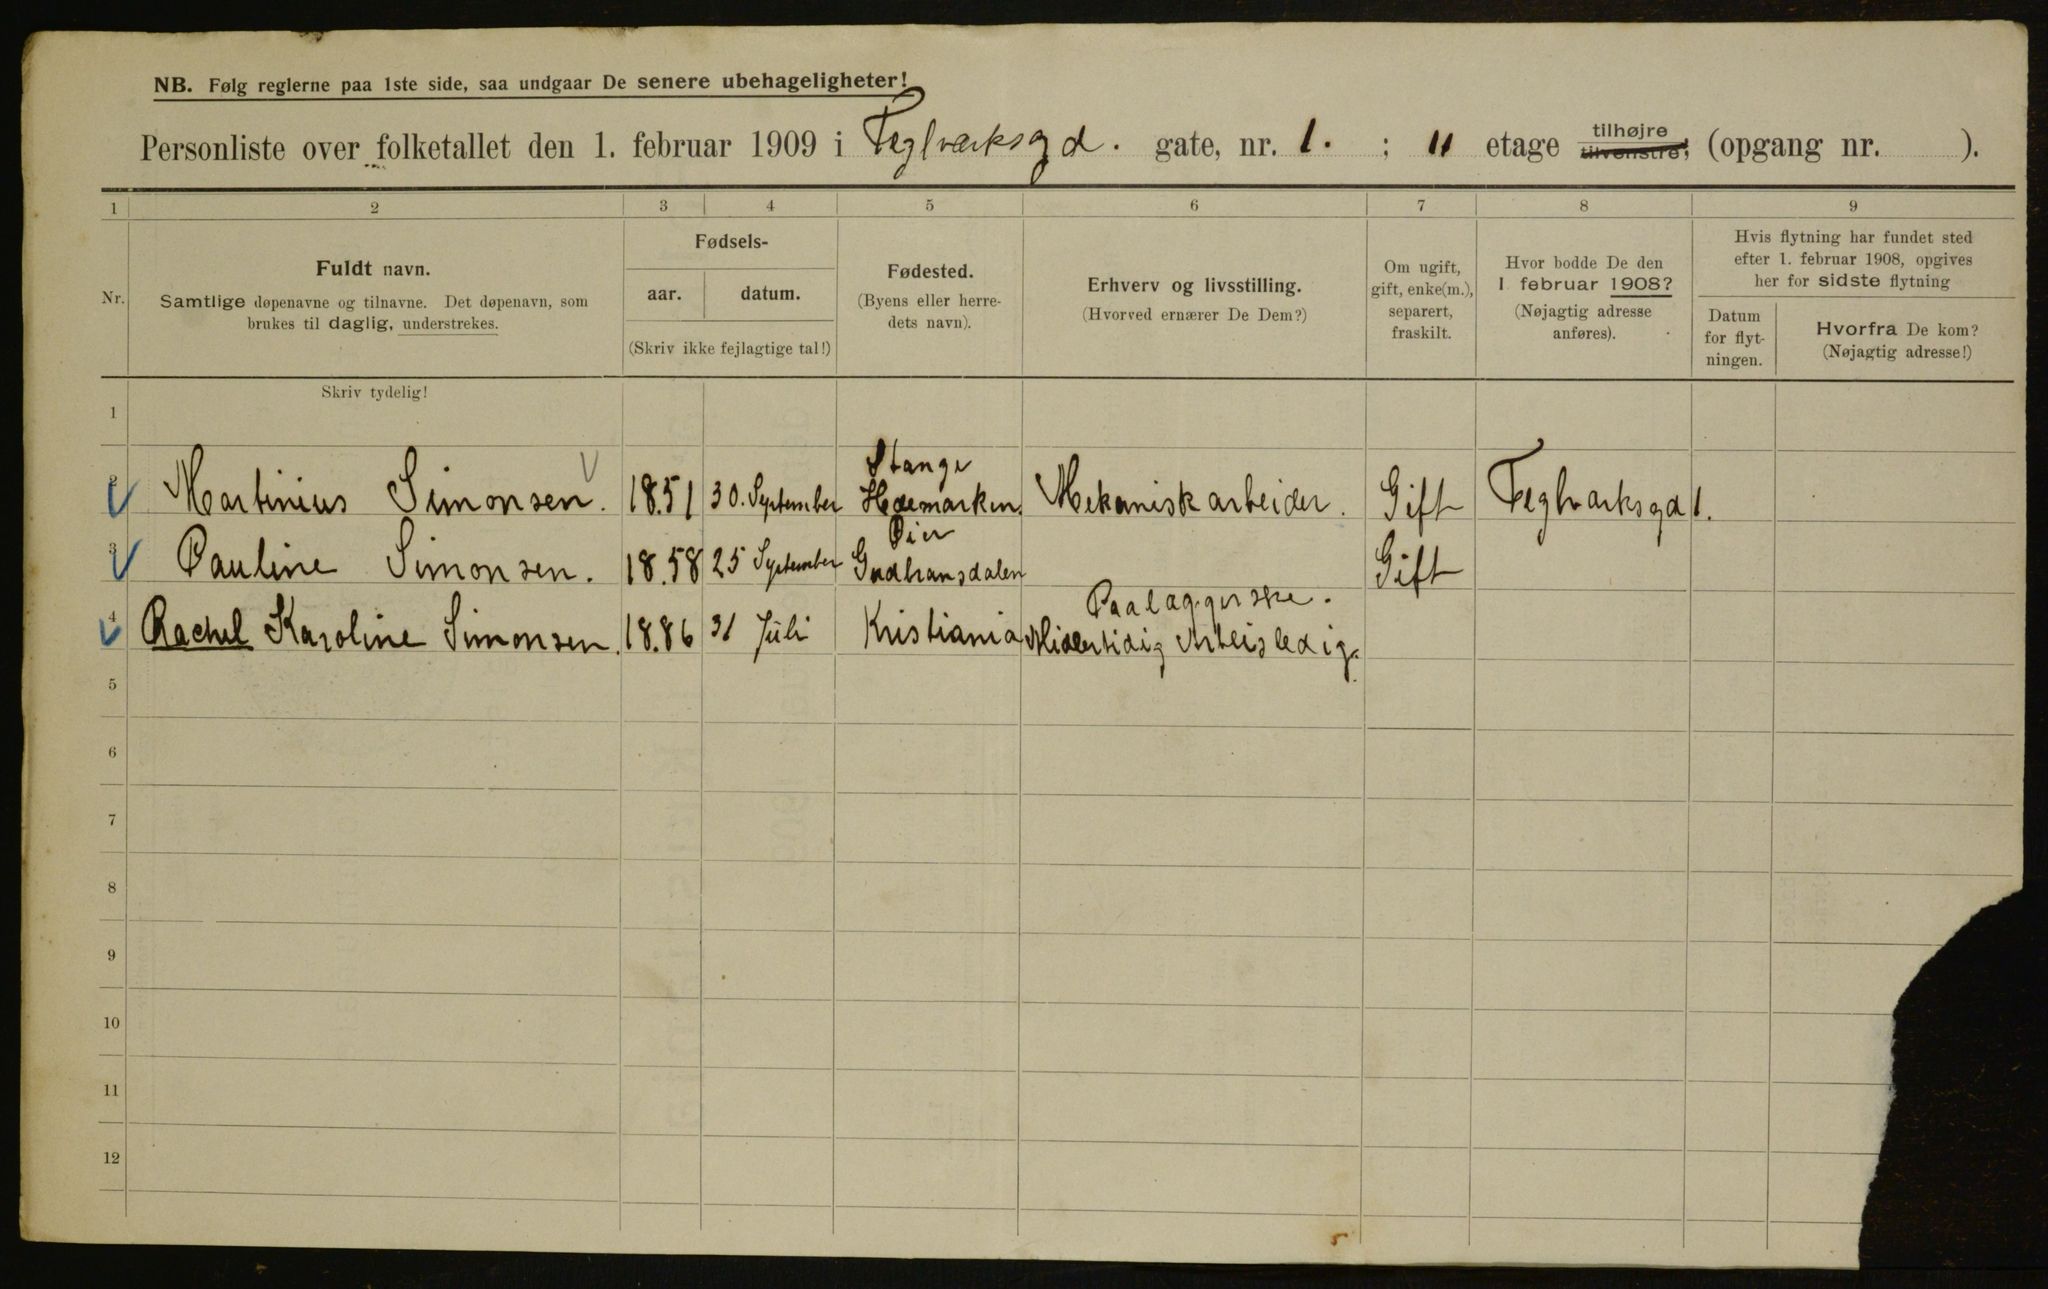 NB. Følg reglerne paa 1ste side, saa undgaar De senere ubehageligheter!
Personliste over folketallet den 1. februar 1909 i Teglværksgd. gate, nr. 1. ; II etage tilhøjre tilvenstre; (opgang nr. ).
1 2 3 4 5 6 7 8 9
Nr.
Fuldt navn.
Samtlige døpenavne og tilnavne. Det døpenavn, som
brukes til daglig, understrekes.
Fødsels-
aar. datum.
(Skriv ikke fejlagtige tal!)
Fødested.
(Byens eller herre-
dets navn).
Erhverv og livsstilling.
(Hvorved ernærer De Dem?)
Om ugift,
gift, enke(m.),
separert,
fraskilt.
Hvor bodde De den
1 februar 1908?
(Nøjagtig adresse
anføres).
Hvis flytning har fundet sted
efter 1. februar 1908, opgives
her for sidste flytning
Datum
for flyt-
ningen.
Hvorfra De kom?
(Nøjagtig adresse!)
Skriv tydelig!
1
Stange
2 Martinius Simonsen. 18.51 30. September Hedemarken. Mekanisk arbeider. Gift Teglvarksgd 1.
Øier
3 Pauline Simonsen. 18.58 25 September Gudbransdalen Gift
Paalæggerske.
4 Rachel Karoline Simonsen. 18.86 31 Juli Kristiania Midlertidig Arbeisledig.
5
6
7
8
9
10
11
12